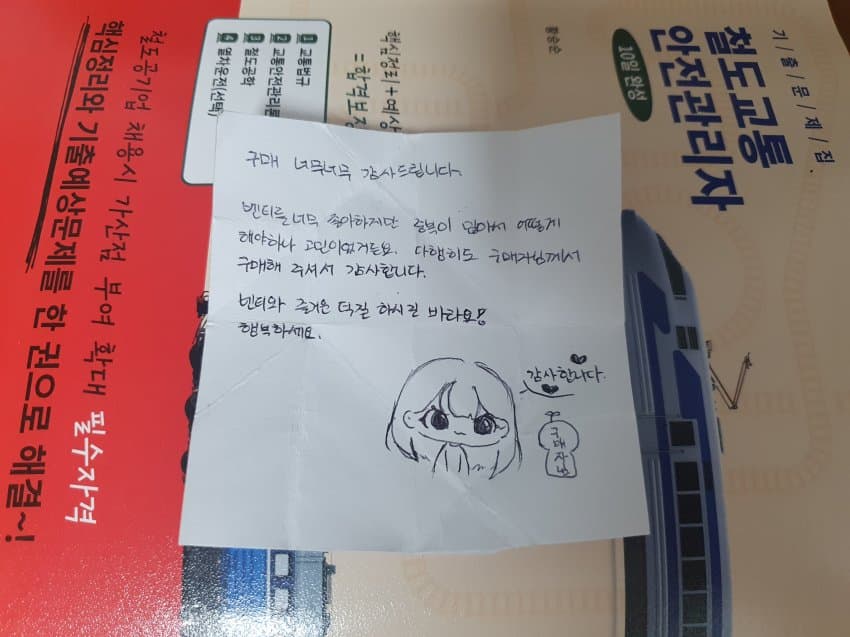 기/출/문/제/집.
철도교통
안전관리자
10일 완성
황승순
핵심정리+예상
=합격보장
1 교통법규
2 교통안전관리론
3 철도공학
4 열차운전(선택)
철도공기업 채용시 가산점 부여 확대 필수자격
핵심정리와 기출예상문제를 한 권으로 해결~!
구매 너무너무 감사드립니다.
벤티를 너무 좋아하지만 중복이 많아서 어떻게
해야하나 고민이었거든요. 다행히도 구매자님께서
구매해 주셔서 감사합니다.
벤티와 즐거운 덕질 하시길 바라요!
행복하세요.
감사합니다.
구매자님